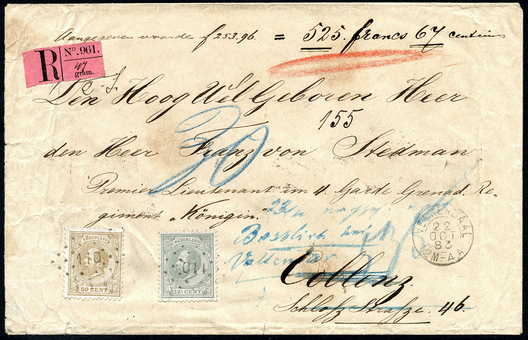 Aangegeven waarde f 253.96 = 525 francs 67 centimes
R No. 961.
47 gram.
Den HoogWelGeboren Heer
155
den Heer Franz von Stedman
Premier Lieutenant im 4. Garde Grenad. Re-
giment „Königin"
Coblenz
Schloß Straße 46.
NEDERLAND
110
50 CENT
NEDERLAND
110
12½ CENT
22
OCT
83